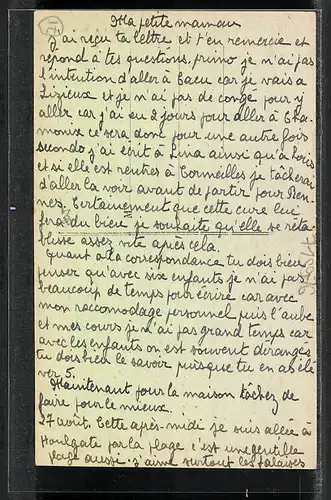 Ma petite maman
j'ai reçu ta lettre et t'en remercie et
répond à tes questions, primo je n'ai pas
l'intention d'aller à Caen car je vais à
Lizieux et je n'ai pas de congé pour y
aller car j'ai eu 2 jours pour aller à Cha
monix ce sera donc pour une autre fois
secondo j'ai écrit à Lina ainsi qu'à
et si elle est rentrés à Cormeilles je tâcherai
d'aller la voir avant de partir pour Ren-
nes. Certainement que cette cure lui
fera du bien je souhaite qu'elle se réta
blisse assez vite après cela.
Quant à la correspondance tu dois bien
penser qu'avec six enfants je n'ai pas
beaucoup de temps pour écrire car avec
mon raccomodage personnel puis l'aube
et mes cours je n'ai pas grand temps car
avec les enfants on est souvent dérangés
tu dois bien le savoir puisque tu en as éle
ver 5.
Maintenant pour la maison tâchez de
faire pour le mieux.
27 août. Cette après-midi je suis allée à
Houlgate par la plage c'est une gentille
plage aussi. j'aime surtout les falaises